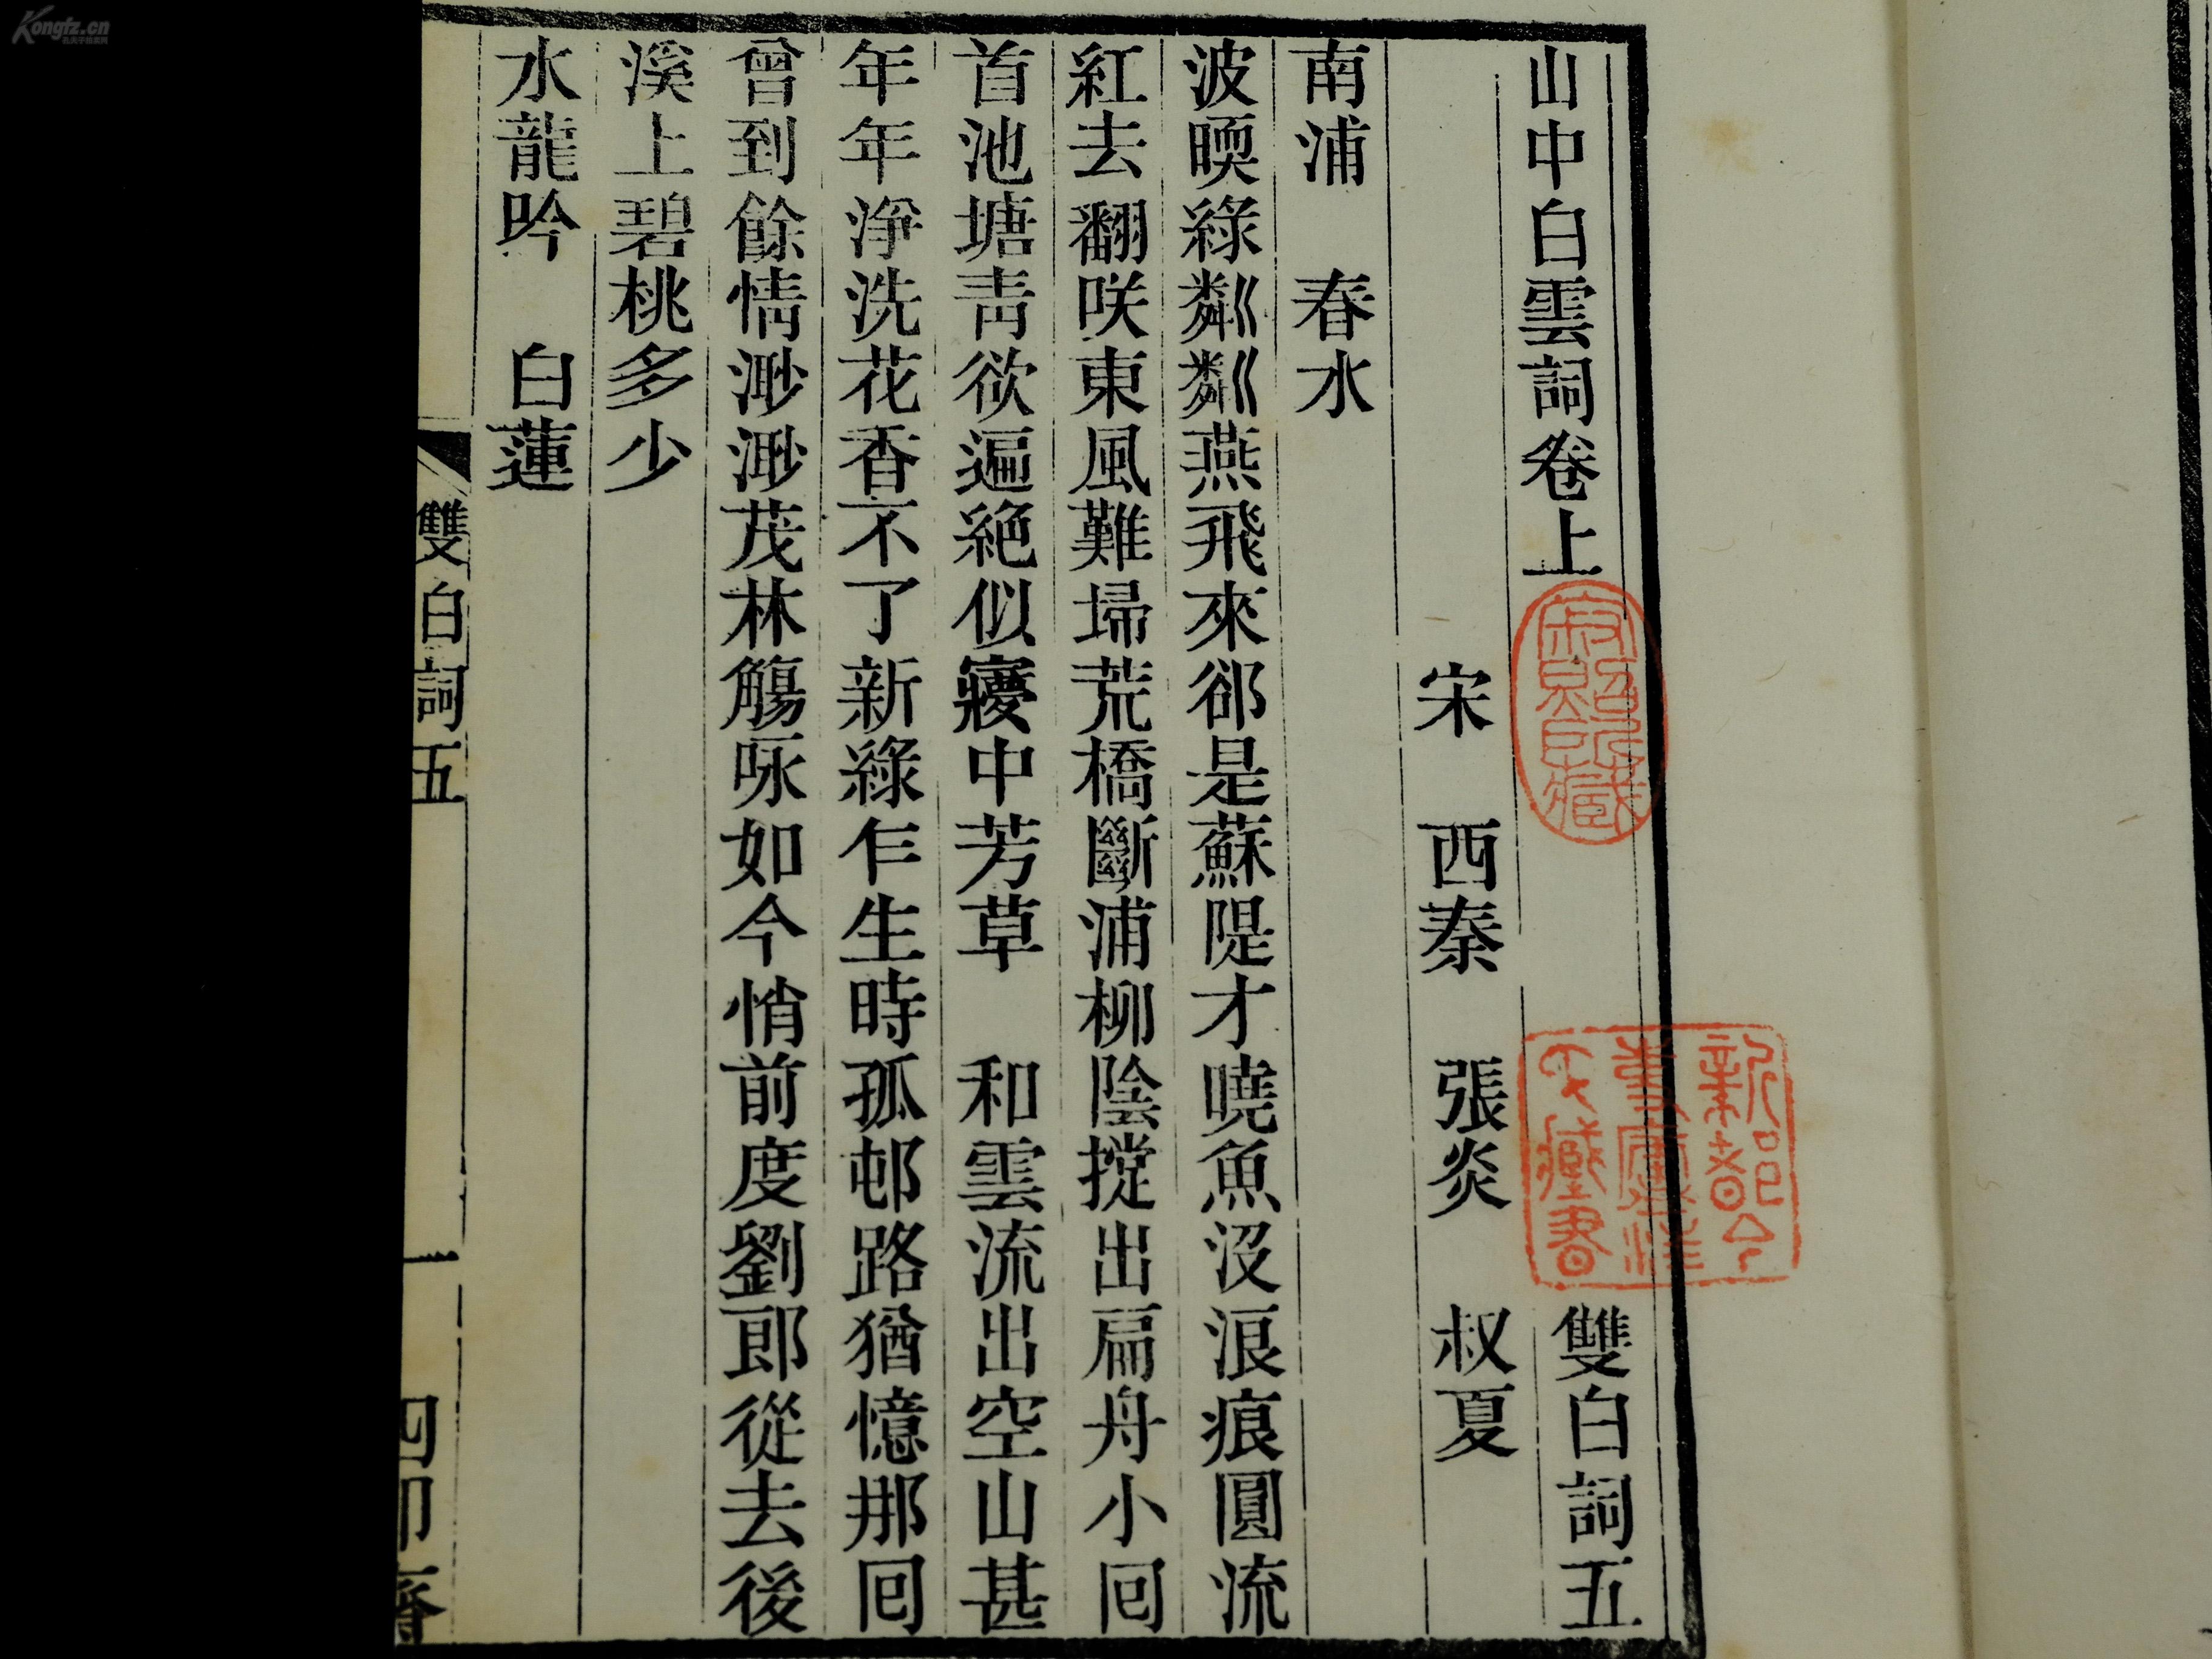 山中白雲詞卷上 雙白詞五
宋 西秦 張炎 叔夏
南浦 春水
波暝綠粼粼燕飛來郤是蘇隄才曉魚沒浪痕圓流
紅去翻咲東風難埽荒橋斷浦柳陰撑出扁舟小囘
首池塘靑欲遍絕似寱中芳草 和雲流出空山甚
年年淨洗花香不了新綠乍生時孤邨路猶憶那囘
曾到餘情渺渺茂林觴咏如今悄前度劉郎從去後
溪上碧桃多少
水龍吟 白蓮
雙白詞五
一
四印齋
Kongfz.cn